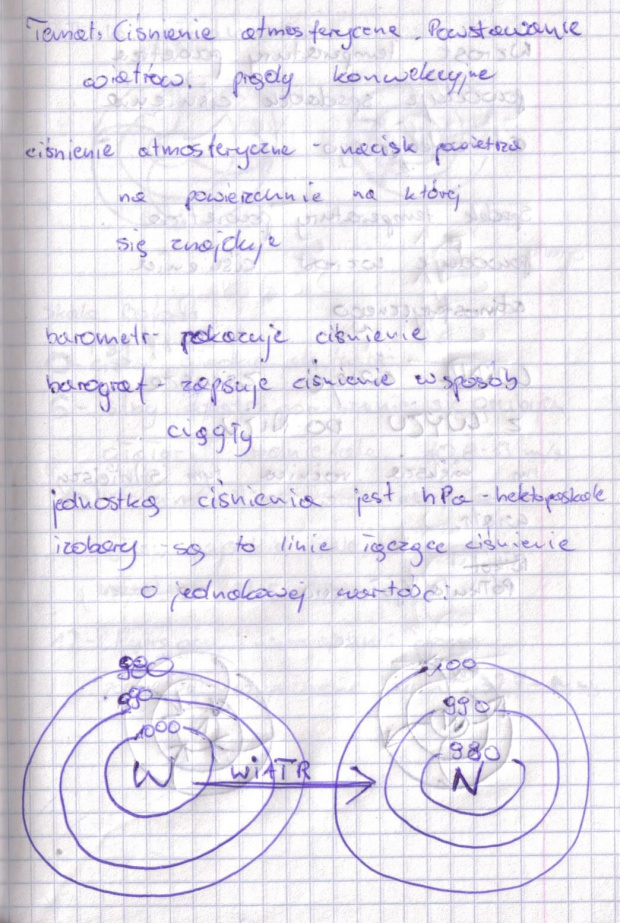 Temat: Ciśnienie atmosferyczne. Powstawanie
wiatrów. prądy konwekcyjne
ciśnienie atmosferyczne - nacisk powietrza
na powierzchnie na której
się znajduje
barometr - pokazuje ciśnienie
barograf - zapisuje ciśnienie w sposób
ciągły
jednostką ciśnienia jest hPa - hektopaskale
izobary - są to linie łączące ciśnienie
o jednakowej wartości
980
990
1000
W
WIATR
990
980
N